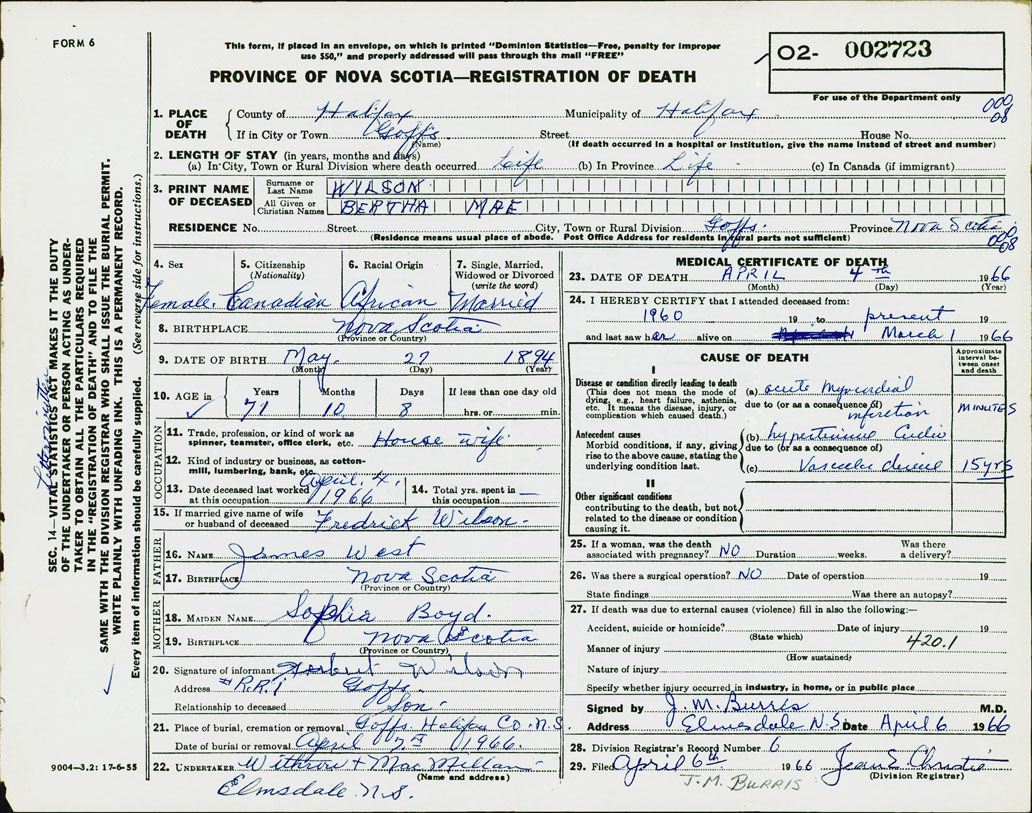 FORM 6
This form, if placed in an envelope, on which is printed "Dominion Statistics—Free, penalty for improper
use $50," and properly addressed will pass through the mail "FREE"
PROVINCE OF NOVA SCOTIA—REGISTRATION OF DEATH
02- 002723
For use of the Department only
000
08
1. PLACE OF DEATH County of Halifax Municipality of Halifax
If in City or Town Goffs Street House No.
(Name) (If death occurred in a hospital or institution, give the name instead of street and number)
2. LENGTH OF STAY (in years, months and days)
(a) In City, Town or Rural Division where death occurred Life (b) In Province Life (c) In Canada (if immigrant)
3. PRINT NAME OF DECEASED Surname or Last Name WILSON
All Given or Christian Names BERTHA MAE
RESIDENCE No. Street City, Town or Rural Division Goffs Province Nova Scotia
(Residence means usual place of abode. Post Office Address for residents in rural parts not sufficient)
000
08
4. Sex 5. Citizenship (Nationality) 6. Racial Origin 7. Single, Married, Widowed or Divorced (write the word)
Female Canadian African Married
8. BIRTHPLACE Nova Scotia
(Province or Country)
9. DATE OF BIRTH May 27 1894
(Month) (Day) (Year)
10. AGE in Years Months Days If less than one day old
71 10 8 hrs. or min.
OCCUPATION
11. Trade, profession, or kind of work as
spinner, teamster, office clerk, etc. House wife
12. Kind of industry or business, as cotton-
mill, lumbering, bank, etc.
13. Date deceased last worked at this occupation April 4, 1966 14. Total yrs. spent in this occupation —
15. If married give name of wife
or husband of deceased Fredrick Wilson
FATHER
16. NAME James West
17. BIRTHPLACE Nova Scotia
(Province or Country)
MOTHER
18. MAIDEN NAME Sophia Boyd.
19. BIRTHPLACE Nova Scotia
(Province or Country)
20. Signature of informant Herbert Wilson
Address #R.R.1 Goffs
Relationship to deceased Son
21. Place of burial, cremation or removal Goffs. Halifax Co. N.S
Date of burial or removal April 7th 1966.
22. UNDERTAKER Withrow + MacMillan
(Name and address)
Elmsdale N.S.
9004—3.2: 17-6-55
MEDICAL CERTIFICATE OF DEATH
23. DATE OF DEATH APRIL 4th 1966
(Month) (Day) (Year)
24. I HEREBY CERTIFY that I attended deceased from:
1960 19 to present 19
and last saw her alive on March 1 1966
CAUSE OF DEATH
Approximate interval between onset and death
I
Disease or condition directly leading to death
(This does not mean the mode of
dying, e.g., heart failure, asthenia,
etc. It means the disease, injury, or
complication which caused death.)
(a) acute myocardial
due to (or as a consequence of)
infarction MINUTES
Antecedent causes
Morbid conditions, if any, giving
rise to the above cause, stating the
underlying condition last.
(b) hypertensive Cardio
due to (or as a consequence of)
(c) Vascular disease 15 yrs
II
Other significant conditions
contributing to the death, but not
related to the disease or condition
causing it.
25. If a woman, was the death
associated with pregnancy? NO Duration weeks. Was there a delivery?
26. Was there a surgical operation? NO Date of operation 19
State findings Was there an autopsy?
27. If death was due to external causes (violence) fill in also the following:—
Accident, suicide or homicide? Date of injury 19
(State which)
420.1
Manner of injury
(How sustained)
Nature of injury
Specify whether injury occurred in industry, in home, or in public place
Signed by J. M. Burris M.D.
Address Elmsdale N.S. Date April 6 1966
28. Division Registrar's Record Number 6
29. Filed April 6th 1966 Jean E Christie
(Division Registrar)
J.M. BURRIS
SEC. 14—VITAL STATISTICS ACT MAKES IT THE DUTY
OF THE UNDERTAKER OR PERSON ACTING AS UNDER-
TAKER TO OBTAIN ALL THE PARTICULARS REQUIRED
IN THE "REGISTRATION OF DEATH" AND TO FILE THE
SAME WITH THE DIVISION REGISTRAR WHO SHALL ISSUE THE BURIAL PERMIT.
WRITE PLAINLY WITH UNFADING INK. THIS IS A PERMANENT RECORD.
Every item of information should be carefully supplied. (See reverse side for instructions.)